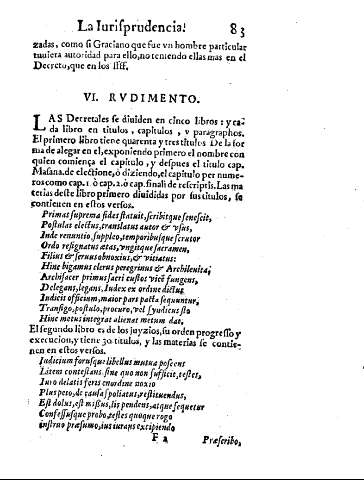 La Iurisprudencia. 83
zadas, como si Graciano que fue vn hombre particular
tuuiera autoridad para ello, no teniendo ellas mas en el
Decreto, que en los ffff.
VI. RVDIMENTO.
LAS Decretales se diuiden en cinco libros: y ca-
da libro en titulos, capitulos, y paragraphos.
El primero libro tiene quarenta y tres titulos De la for
ma de alegar en el, exponiendo primero el nombre con
quien comiença el capitulo, y despues el titulo cap.
de electione, ò diziendo, el capitulo per nume-
ros como cap. 1. ò cap. 2. ò cap. final. de rescriptis. Las ma
terias deste libro primero diuididas por sus titulos, se
contienen en estos versos.
Primas suprema fides statuit, scribitque senescit,
Postulat electus, translatus autor & vsus,
Inde renuntio, suppleo, temporibusque scrutor
Ordo resignatus atas, vngitque sacramen,
Filius & seruus obnoxius, & vitiatus:
Hinc bigamus clerus peregrinus &
Archipacer primus sacri custos vicē fungens,
Delegans, legans, Iudex ex ordine dictus
Iudicis officium, maior pars pacta sequuntur,
Transigo, postulo, procuro, vel syndicus sto
Hinc metus integrat alienat metum dat,
El segundo libro es de los juyzios, su orden progresso y
execucion, y tiene 30. titulos, y las materias se contie-
nen en estos versos.
Iudicium forusque libellus mutua poscens
Litem contestans sine quo non sufficit, testes,
Iuro delatis feris en ordine noxio
Plus peto, de causa spoliatus, restituendus,
Est dolus, est missus, lis pendens, atque sequetur
Confessusque probo, testes quoque rogo
instruo præsumo, ius iurans excipiendo
F 2 Præscribo,